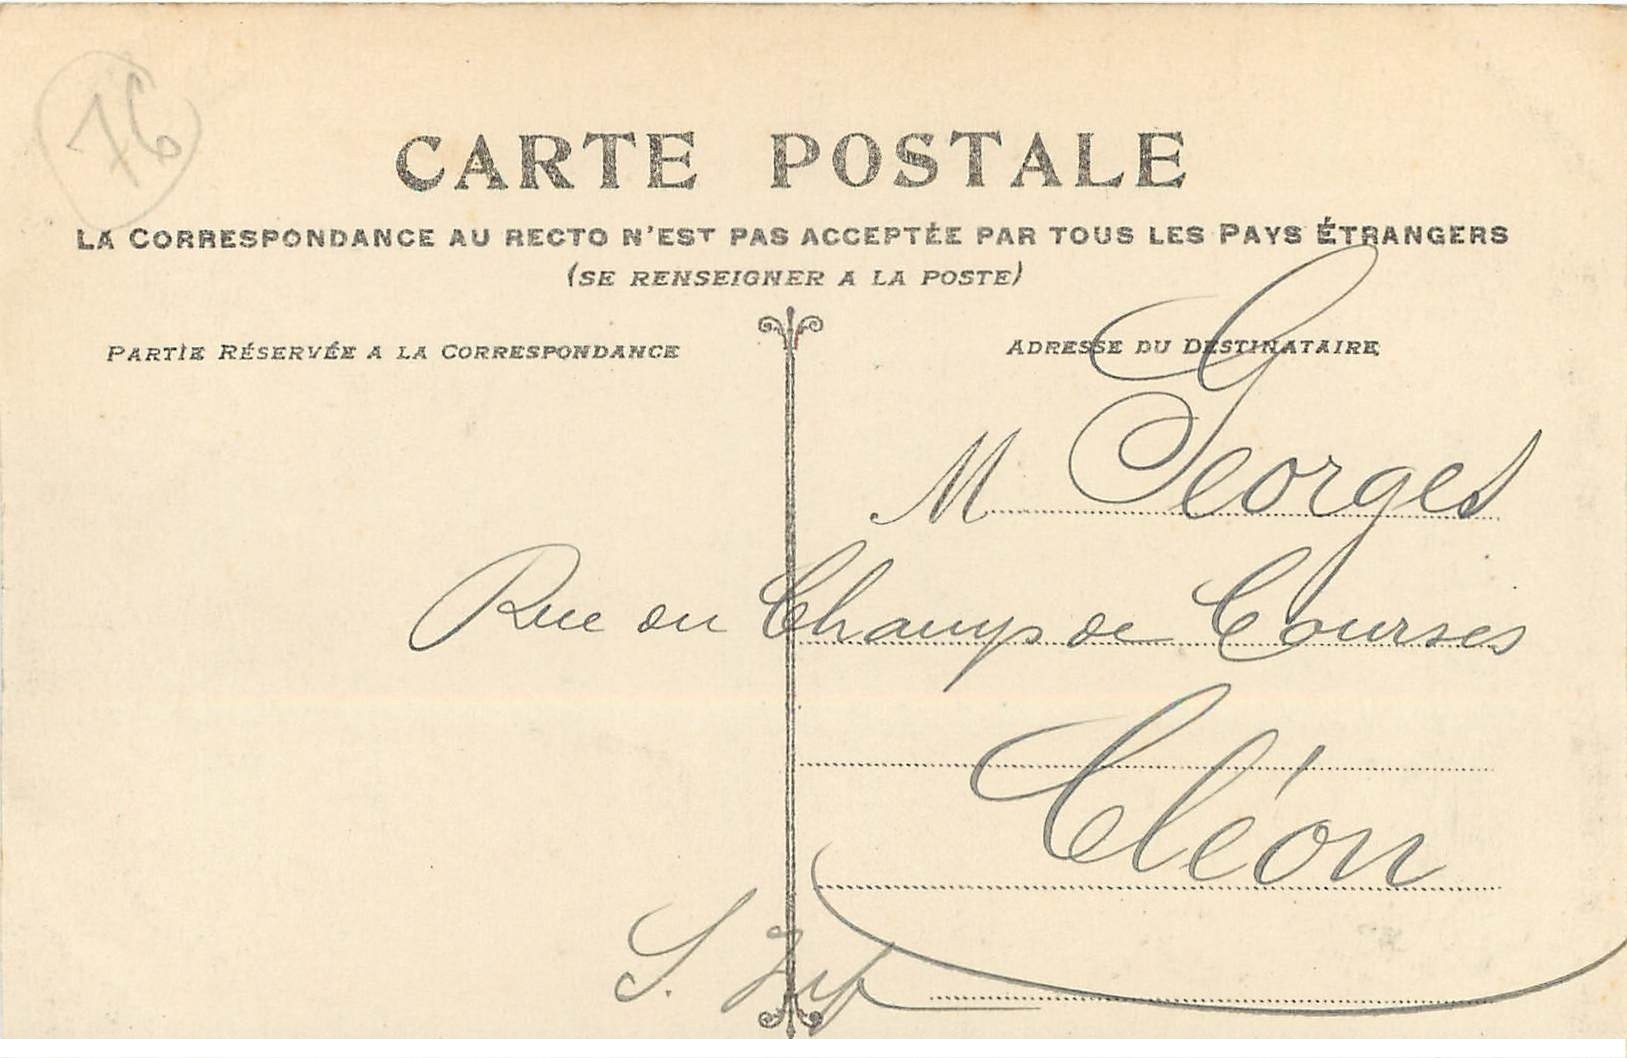 76
CARTE POSTALE
LA CORRESPONDANCE AU RECTO N'EST PAS ACCEPTÉE PAR TOUS LES PAYS ÉTRANGERS
(SE RENSEIGNER A LA POSTE)
PARTIE RÉSERVÉE A LA CORRESPONDANCE
ADRESSE DU DESTINATAIRE
M Georges
Rue du Champ de Courses
Cléon
S. Inf